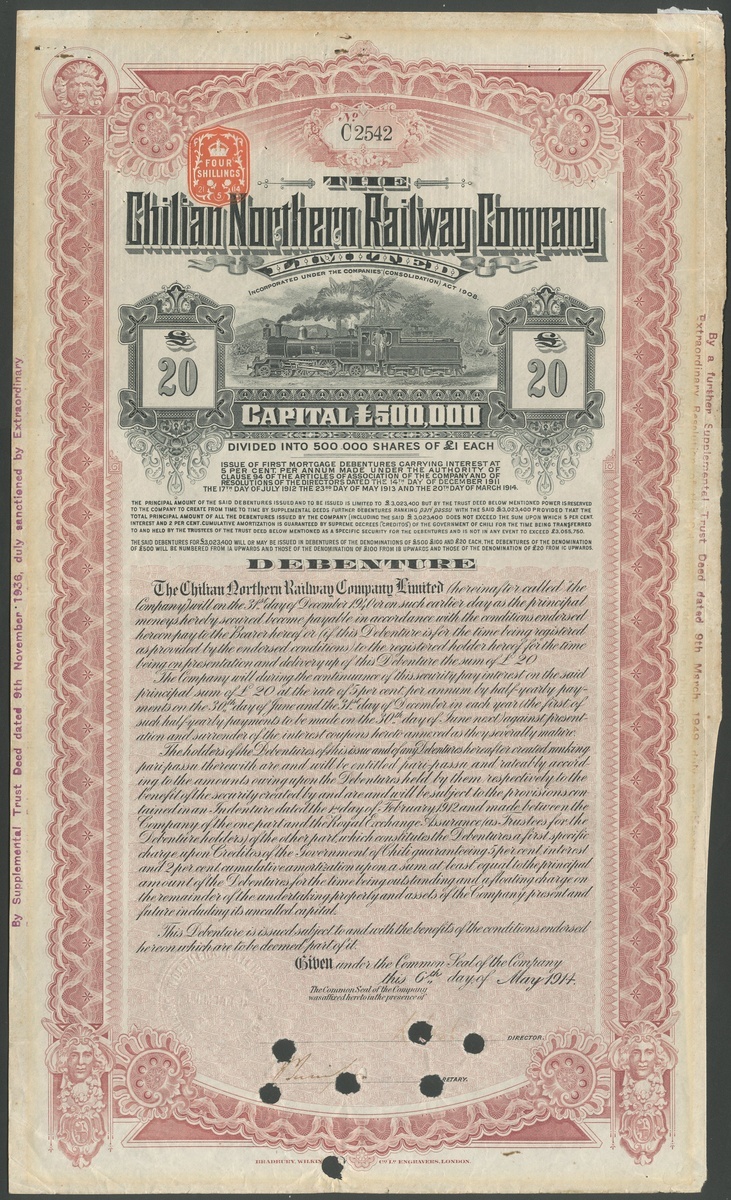 No
C2542
FOUR
SHILLINGS
THE
Chilian Northern Railway Company
LIMITED
INCORPORATED UNDER THE COMPANIES (CONSOLIDATION) ACT 1908.
£
20
£
20
CAPITAL £500,000
DIVIDED INTO 500 000 SHARES OF £1 EACH
ISSUE OF FIRST MORTGAGE DEBENTURES CARRYING INTEREST AT
5 PER CENT. PER ANNUM MADE UNDER THE AUTHORITY OF
CLAUSE 94 OF THE ARTICLES OF ASSOCIATION OF THE COMPANY AND OF
RESOLUTIONS OF THE DIRECTORS DATED THE 14TH DAY OF DECEMBER 1911
THE 17TH DAY OF JULY 1912 THE 23RD DAY OF MAY 1913 AND THE 20TH DAY OF MARCH 1914.
THE PRINCIPAL AMOUNT OF THE SAID DEBENTURES ISSUED AND TO BE ISSUED IS LIMITED TO £3,023,400 BUT BY THE TRUST DEED BELOW MENTIONED POWER IS RESERVED
TO THE COMPANY TO CREATE FROM TIME TO TIME BY SUPPLEMENTAL DEEDS FURTHER DEBENTURES RANKING pari passu WITH THE SAID £3,023,400 PROVIDED THAT THE
TOTAL PRINCIPAL AMOUNT OF ALL THE DEBENTURES ISSUED BY THE COMPANY (INCLUDING THE SAID £3,023,400) DOES NOT EXCEED THE SUM UPON WHICH 5 PER CENT.
INTEREST AND 2 PER CENT. CUMULATIVE AMORTIZATION IS GUARANTEED BY SUPREME DECREES (CREDITOS) OF THE GOVERNMENT OF CHILI FOR THE TIME BEING TRANSFERRED
TO AND HELD BY THE TRUSTEES OF THE TRUST DEED BELOW MENTIONED AS A SPECIFIC SECURITY FOR THE DEBENTURES AND IS NOT IN ANY EVENT TO EXCEED £3,055,750.
THE SAID DEBENTURES FOR £3,023,400 WILL OR MAY BE ISSUED IN DEBENTURES OF THE DENOMINATIONS OF £500 £100 AND £20 EACH. THE DEBENTURES OF THE DENOMINATION
OF £500 WILL BE NUMBERED FROM 1A UPWARDS AND THOSE OF THE DENOMINATION OF £100 FROM 1B UPWARDS AND THOSE OF THE DENOMINATION OF £20 FROM 1C UPWARDS.
DEBENTURE
The Chilian Northern Railway Company Limited (hereinafter called "the
Company") will on the 31st day of December 1940 or on such earlier day as the principal
moneys hereby secured become payable in accordance with the conditions endorsed
hereon pay to the Bearer hereof or (if this Debenture is for the time being registered
as provided by the endorsed conditions) to the registered holder hereof for the time
being on presentation and delivery up of this Debenture the sum of £20
The Company will during the continuance of this security pay interest on the said
principal sum of £20 at the rate of 5 per cent. per annum by half-yearly pay-
ments on the 30th day of June and the 31st day of December in each year (the first of
such half-yearly payments to be made on the 30th day of June next) against present-
ation and surrender of the interest coupons hereto annexed as they severally mature.
The holders of the Debentures of this issue and of any Debentures hereafter created ranking
pari-passu therewith are and will be entitled pari-passu and rateably accord-
ing to the amounts owing upon the Debentures held by them respectively to the
benefit of the security created by and are and will be subject to the provisions con-
tained in an Indenture dated the 1st day of February 1912 and made between the
Company of the one part and the Royal Exchange Assurance (as Trustees for the
Debenture holders) of the other part, which constitutes the Debentures a first specific
charge upon Creditos of the Government of Chili guaranteeing 5 per cent. interest
and 2 per cent. cumulative amortization upon a sum at least equal to the principal
amount of the Debentures for the time being outstanding and a floating charge on
the remainder of the undertaking property and assets of the Company present and
future including its uncalled capital.
This Debenture is issued subject to and with the benefits of the conditions endorsed
hereon which are to be deemed part of it.
Given under the Common Seal of the Company
this 6th day of May 1914.
The Common Seal of the Company
was affixed hereto in the presence of
DIRECTOR.
RETARY.
BRADBURY, WILKIN Co. Ld. ENGRAVERS, LONDON.
By Supplemental Trust Deed dated 9th November 1936, duly sanctioned by Extraordinary
By a further Supplemental Trust Deed dated 9th March
Extraordinary